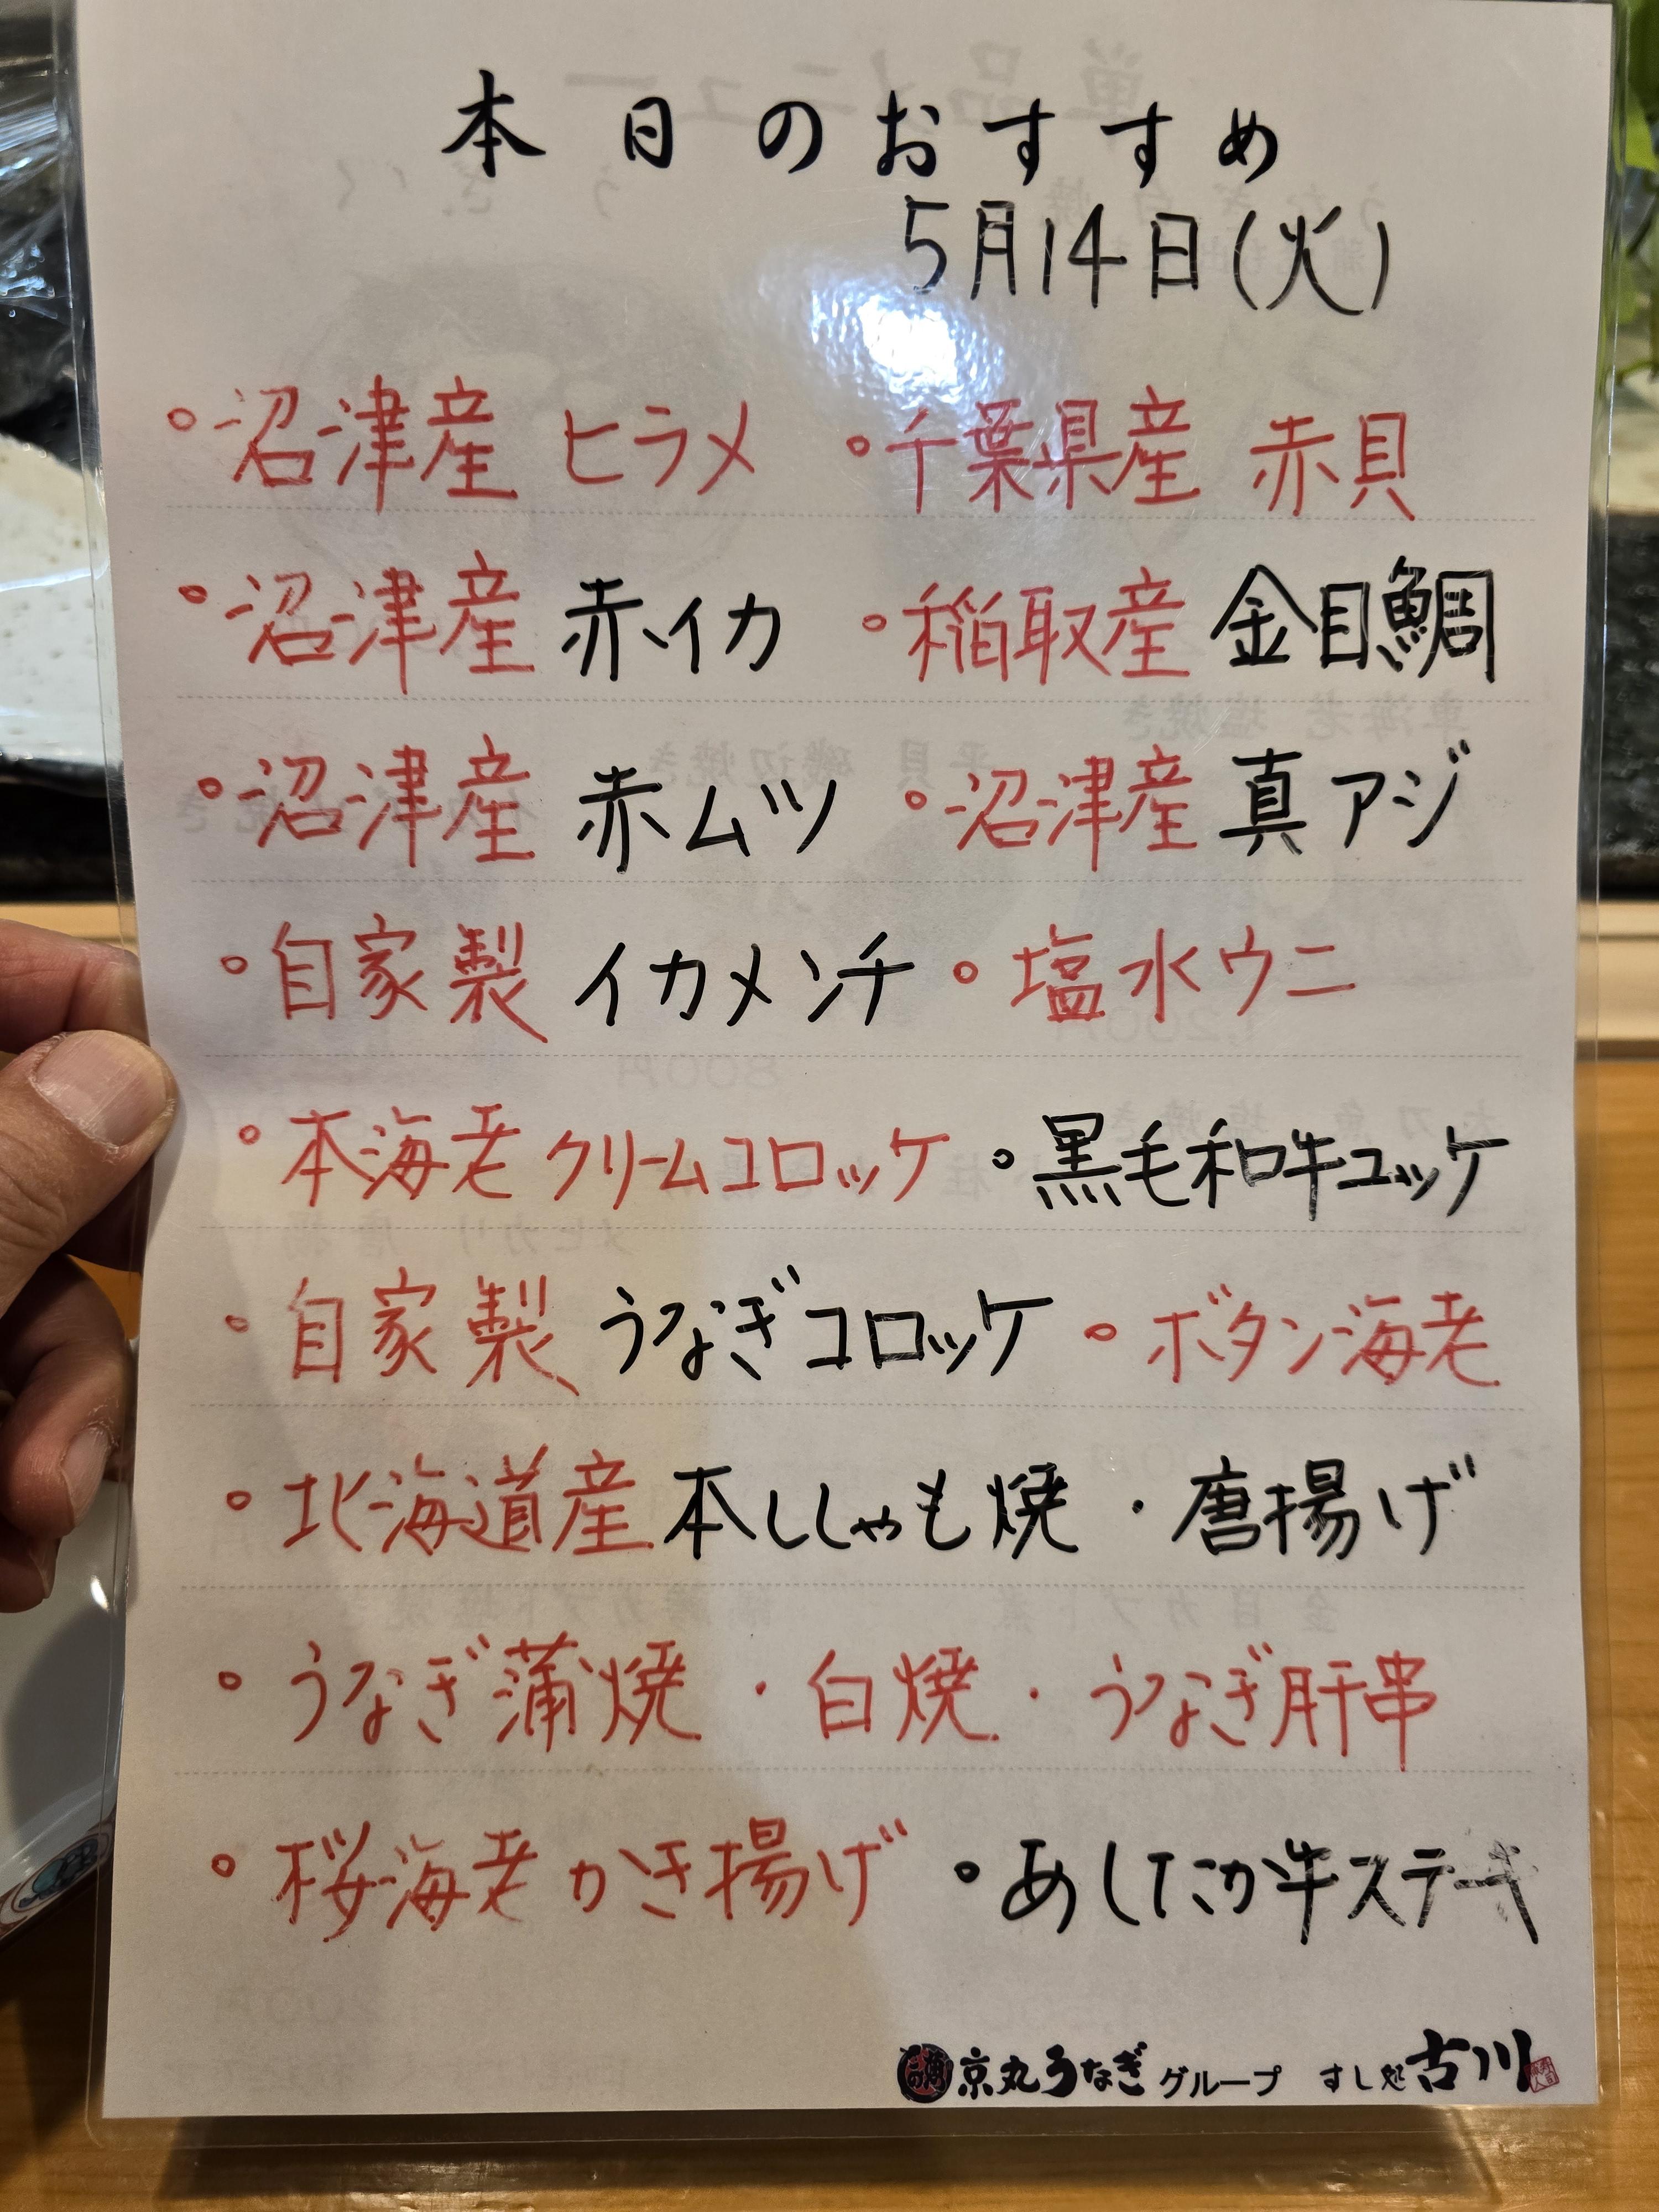 本日のおすすめ
5月14日(火)
○沼津産 ヒラメ ○千葉県産 赤貝
○沼津産 赤イカ ○稲取産 金目鯛
○沼津産 赤ムツ ○沼津産 真アジ
○自家製 イカメンチ ○塩水ウニ
○本海老クリームコロッケ ○黒毛和牛ユッケ
○自家製 うなぎコロッケ ○ボタン海老
○北海道産 本ししゃも焼・唐揚げ
○うなぎ蒲焼・白焼・うなぎ肝串
○桜海老かき揚げ ○あしたか牛ステーキ
京丸うなぎグループ すし処 古川